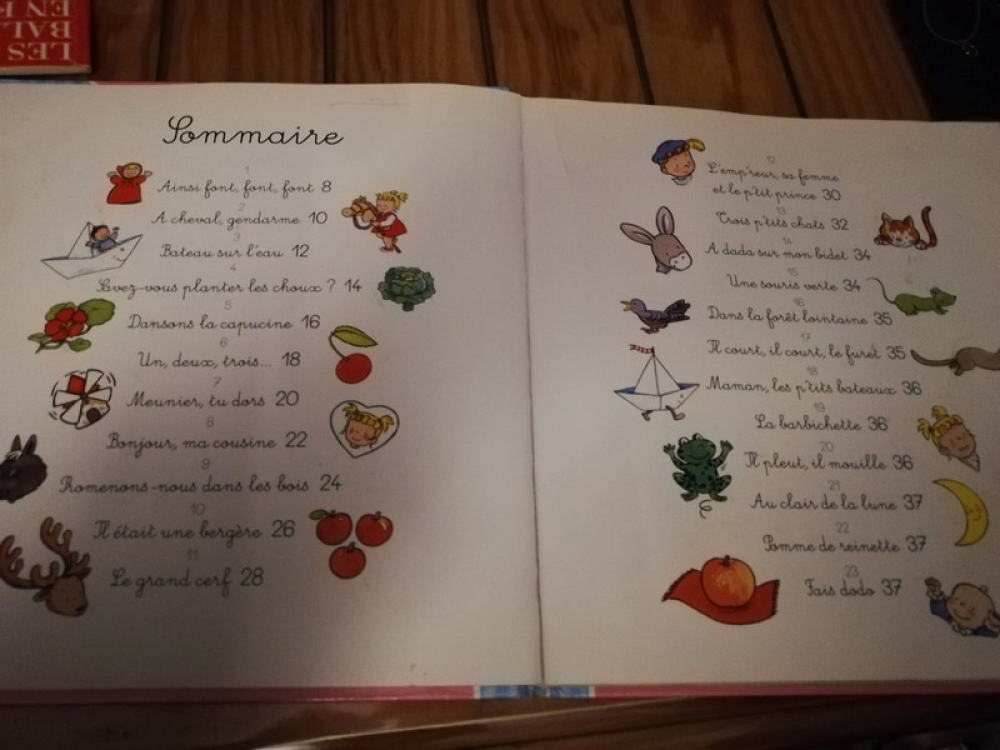 LES
BAL
EN
Sommaire
1
Ainsi font, font, font 8
2
A cheval, gendarme 10
3
Bateau sur l'eau 12
4
Savez-vous planter les choux ? 14
5
Dansons la capucine 16
6
Un, deux, trois... 18
7
Meunier, tu dors 20
8
Bonjour, ma cousine 22
9
Promenons-nous dans les bois 24
10
Il était une bergère 26
11
Le grand cerf 28
12
L'emp'reur, sa femme
et le p'tit prince 30
13
Trois p'tits chats 32
14
A dada sur mon bidet 34
15
Une souris verte 34
16
Dans la forêt lointaine 35
17
Il court, il court, le furet 35
18
Maman, les p'tits bateaux 36
19
La barbichette 36
20
Il pleut, il mouille 36
21
Au clair de la lune 37
22
Pomme de reinette 37
23
Fais dodo 37